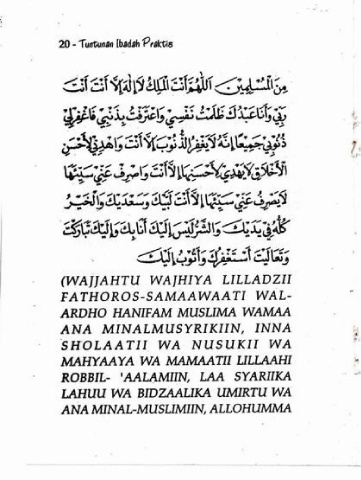 20 - Tuntunan Ibadah Praktis
مِنَ الْمُسْلِمِيْنَ اَللّٰهُمَّ اَنْتَ الْمَلِكُ لَا اِلٰهَ اِلَّا اَنْتَ اَنْتَ
رَبِّيْ وَاَنَا عَبْدُكَ ظَلَمْتُ نَفْسِيْ وَاعْتَرَفْتُ بِذَنْبِيْ فَاغْفِرْلِيْ
ذُنُوْبِيْ جَمِيْعًا اِنَّهُ لَا يَغْفِرُ الذُّنُوْبَ اِلَّا اَنْتَ وَاهْدِنِيْ لِاَحْسَنِ
الْاَخْلَاقِ لَا يَهْدِيْ لِاَحْسَنِهَا اِلَّا اَنْتَ وَاصْرِفْ عَنِّيْ سَيِّئَهَا
لَا يَصْرِفُ عَنِّيْ سَيِّئَهَا اِلَّا اَنْتَ لَبَّيْكَ وَسَعْدَيْكَ وَالْخَيْرُ
كُلُّهُ فِيْ يَدَيْكَ وَالشَّرُّ لَيْسَ اِلَيْكَ اَنَابِكَ وَاِلَيْكَ تَبَارَكْتَ
وَتَعَالَيْتَ اَسْتَغْفِرُكَ وَاَتُوْبُ اِلَيْكَ
(WAJJAHTU WAJHIYA LILLADZII
FATHOROS-SAMAAWAATI WAL-
ARDHO HANIFAM MUSLIMA WAMAA
ANA MINALMUSYRIKIIN, INNA
SHOLAATII WA NUSUKII WA
MAHYAAYA WA MAMAATII LILLAAHI
ROBBIL- 'AALAMIIN, LAA SYARIIKA
LAHUU WA BIDZAALIKA UMIRTU WA
ANA MINAL-MUSLIMIIN, ALLOHUMMA